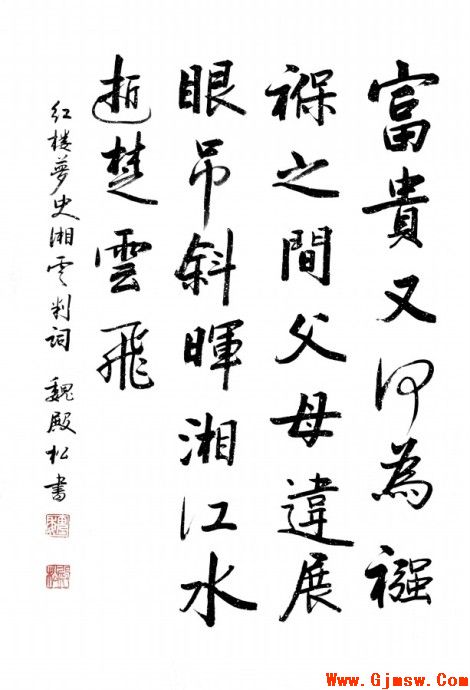 富貴又何為襁
褓之間父母違展
眼吊斜暉湘江水
逝楚雲飛
红楼夢史湘雲判词 魏殿松書
Www.Gjmsw.Com